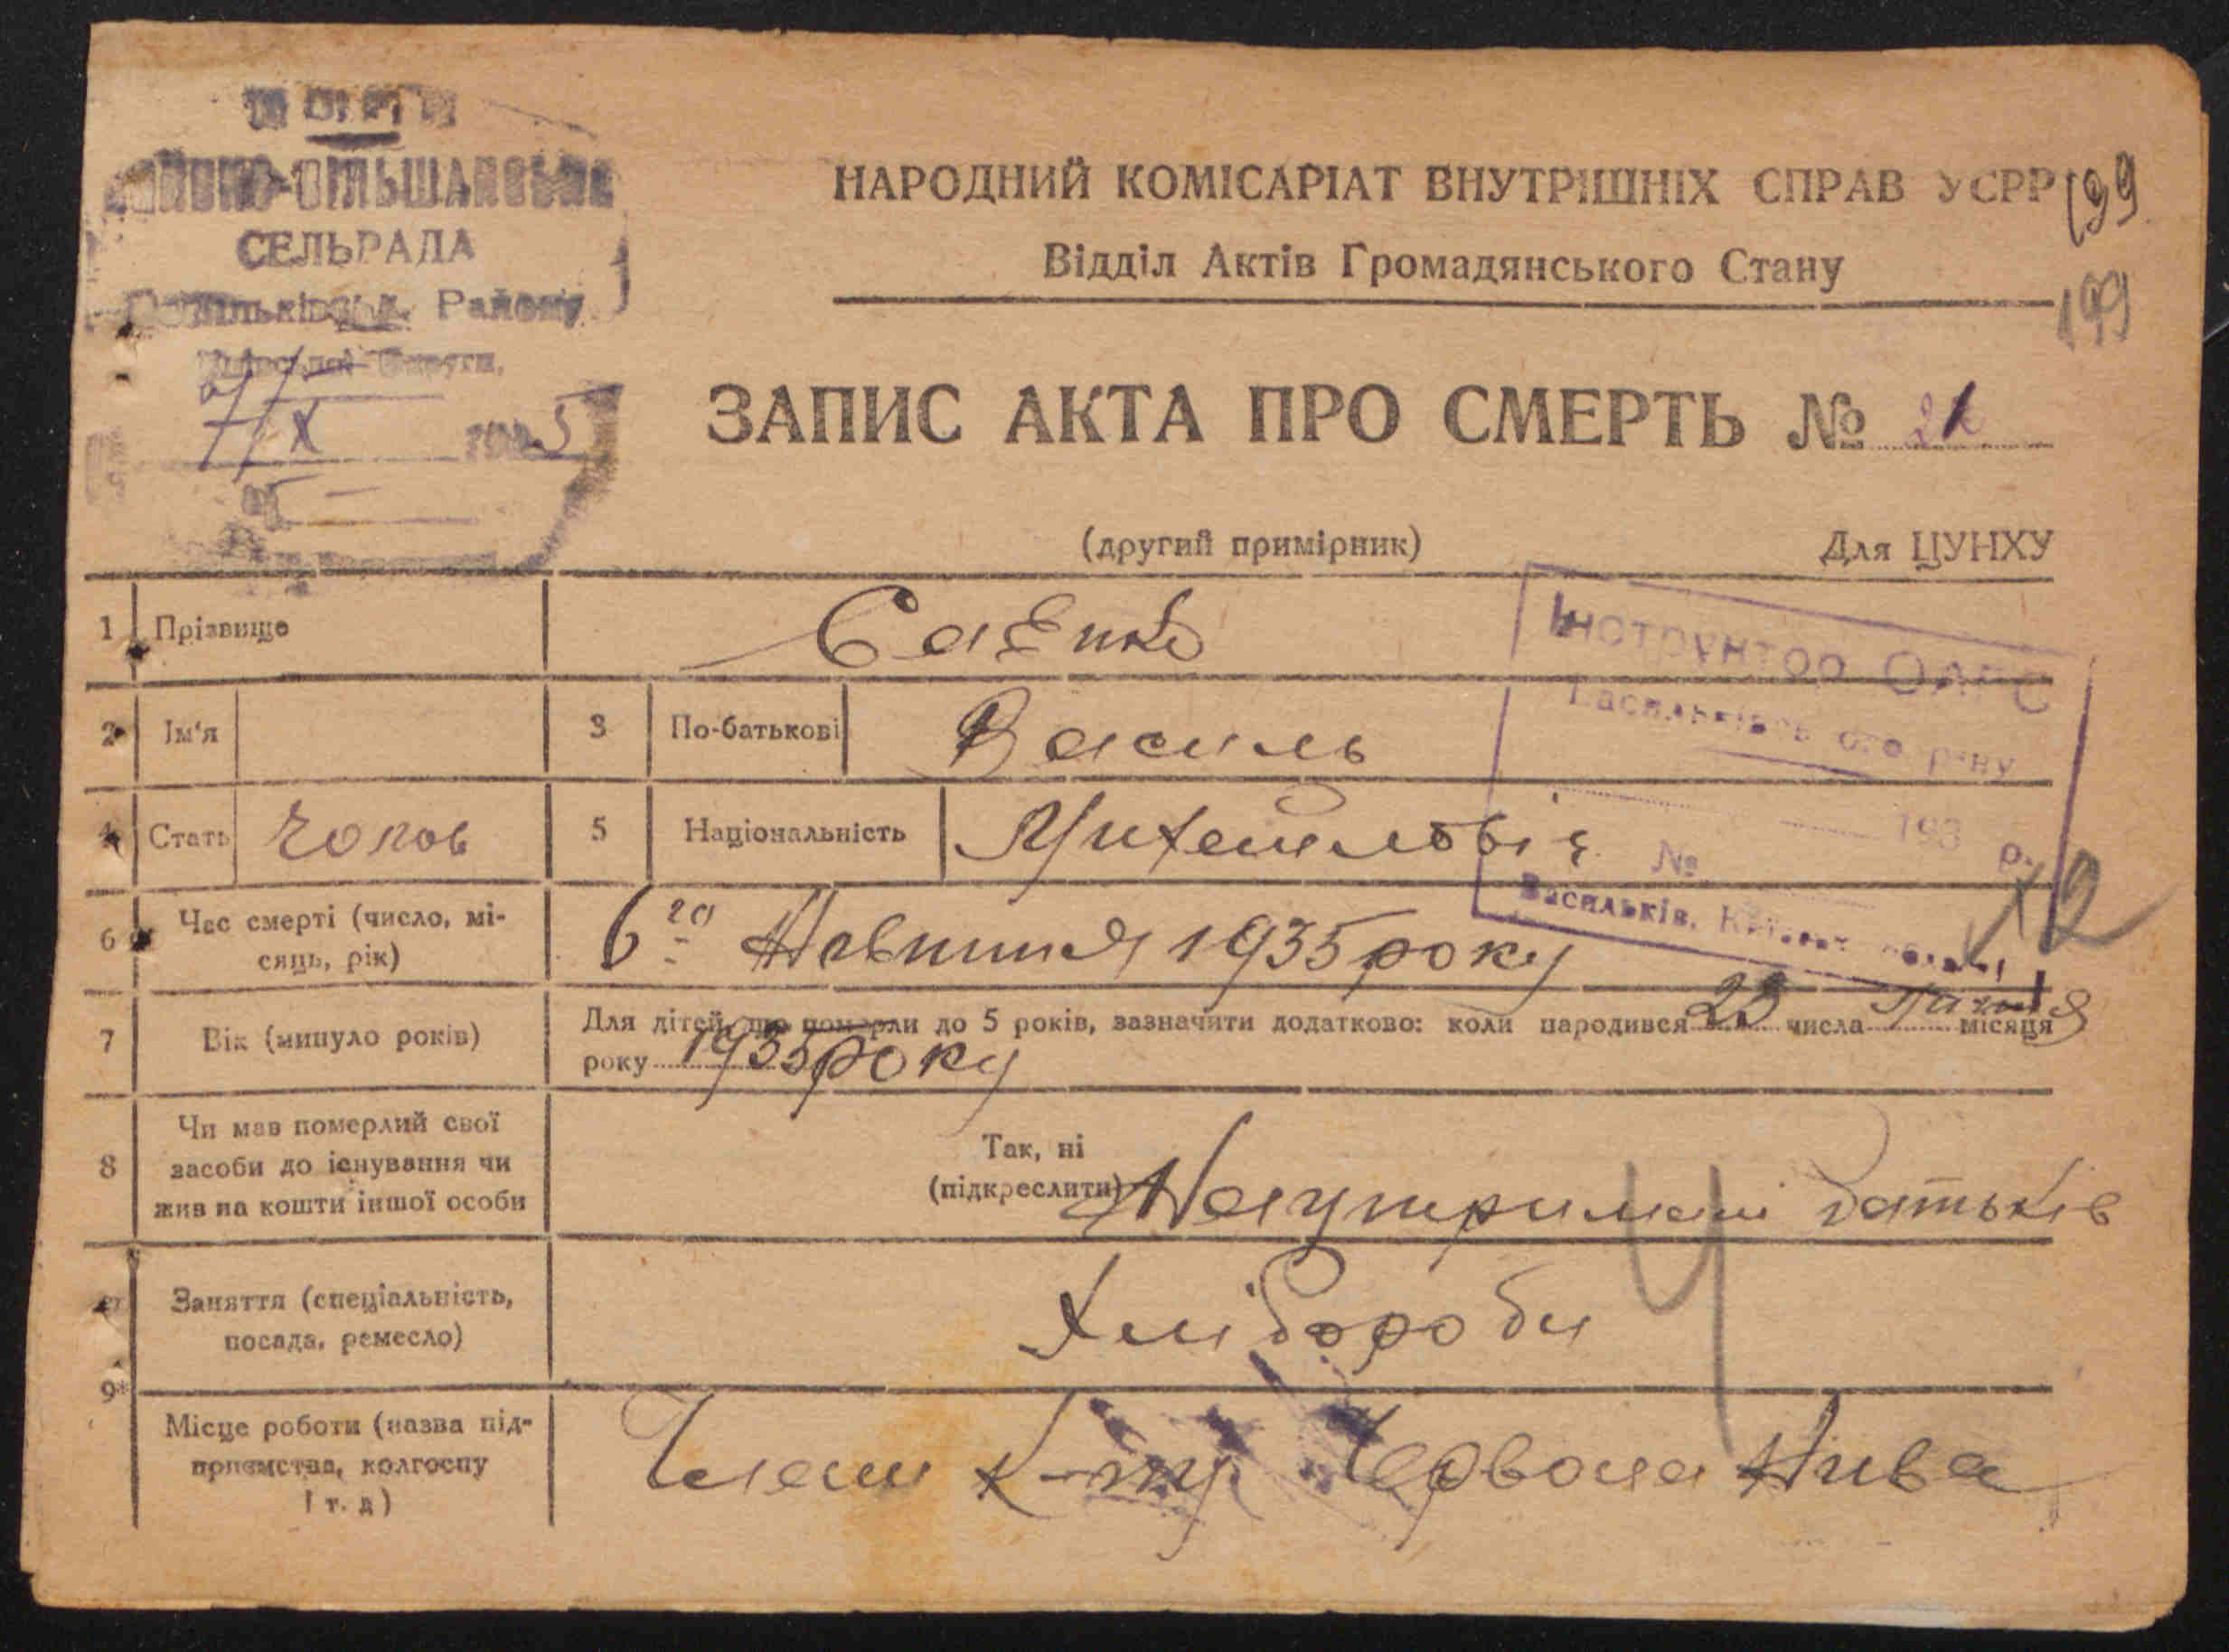 СЕЛЬРАДА
Району
7/X 1935
НАРОДНИЙ КОМІСАРІАТ ВНУТРІШНІХ СПРАВ УСРР
199
Відділ Актів Громадянського Стану
199
ЗАПИС АКТА ПРО СМЕРТЬ № 21
(другий примірник) Для ЦУНХУ
Інструктор ОАГС
Васильківського р-ну
193 р.
№
Васильків,
1 Прізвище Саєнко
2 Ім'я 3 По-батькові Василь
4 Стать Чолов 5 Національність Михайловіч
6 Час смерті (число, мі-
сяць, рік) 6го Жовтня 1935 року
7 Вік (минуло років) Для дітей, що померли до 5 років, зазначити додатково: коли народився 23 числа Липня місяця
року 1935 року
8 Чи мав померлий свої
засоби до існування чи
жив на кошти іншої особи
Так, ні
(підкреслити) На утримані батьків
Заняття (спеціальність,
посада, ремесло) Хлібороби
9
Місце роботи (назва під-
приємства, колгоспу
і т. д) Член к-пу Червона Нива